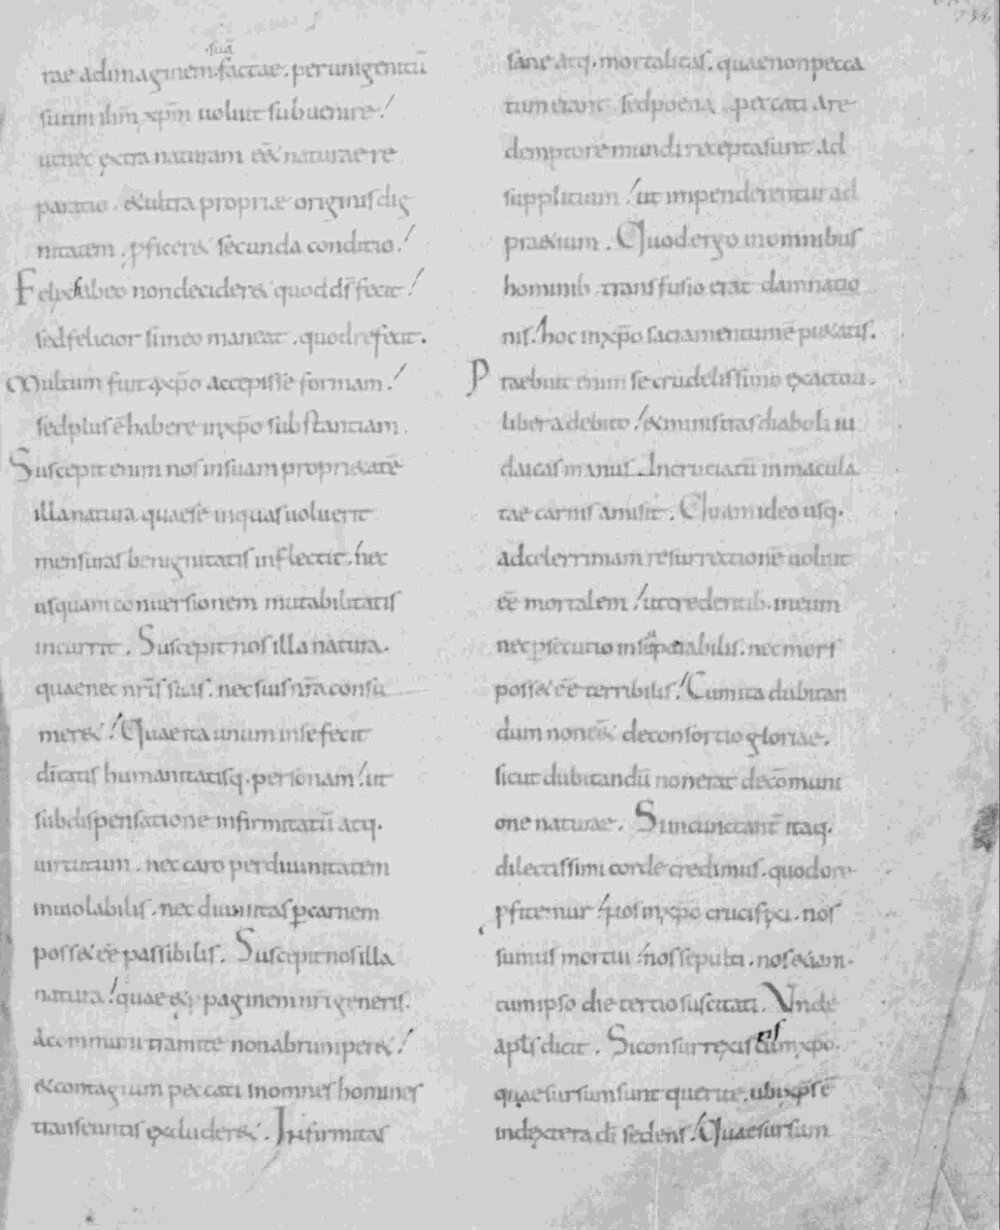 736
suā
rae adimaginem factae. perunigenitū
suum ihm̄ xp̄m uoluit subuenire!
utnec extra naturam eēt naturae re
paratio. &ultra propriae originis dig
nitatem. pficer& secunda conditio!
Felix siabeo nondecider& quod d̄s fecit!
sedfelicior sineo maneat. quodrefecit.
Multum fuit axp̄o accepisse formam!
sedplus ē habere inxp̄o substantiam.
Suscepit enim nos insuam propri&atē
illanatura quae se inquas uoluerit
mensuras benignitatis inflectit. nec
usquam conuersionem mutabilitatis
incurrit. Suscepit nos illa natura.
quae nec nr̄is suas. nec suis nr̄a consu
mer&! Quae ita unum inse fecit
diītatis humanitatisq. personam! ut
subdispensatione infirmitatū atq.
uirtutum. nec caro perdiuinitatem
inuiolabilis. nec diuinitas pcarnem
poss& eē passibilis. Suscepit nos illa
natura! quae & ppaginem nr̄i generis.
Acommuni tramite nonabrumper&!
&contagium peccati inomnes homines
transeuntis excluder&. Infirmitas
sane atq. mortalitas. quae non pecca
tum erant sedpoena peccati Are
demptore mundi receptasunt ad
supplicium! ut impenderentur ad
pr&ium. Quod ergo inomnibus
hominib. transfusio erat damnatio
nis. hoc inxp̄o sacramentum ē pi&atis.
Praebuit enim se crudelissimo exactori.
libera debito! &ministras diaboli iu
daicas manus. Incruciatū inmacula
tae carnis amisit. Quam ideo usq.
adcelerrimam resurrectionē uoluit
eē mortalem! utcredentib. ineum
nec psecutio insupabilis. nec mors
poss& eē terribilis! Cum ita dubitan
dum non eēt deconsortio gloriae.
sicut dubitandū nonerat decōmuni
one naturae. Sincunctant̄ itaq.
dilectissimi corde credimus. quodore
pfitemur! nos inxp̄o crucifixi. nos
sumus mortui! nos sepulti. nos &iam.
cumipso die tertio suscitati. Unde
apl̄s dicit. Siconsurrexistis cūmxp̄o.
quae sursum sunt querite. ubixp̄s ē
indextera dī sedens! Quae sursum